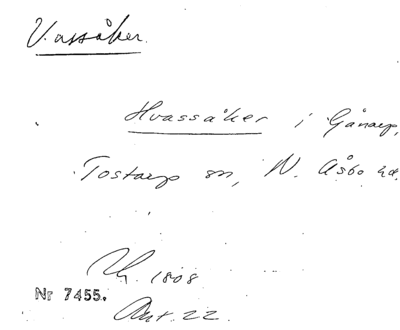 Vassåker.
Hvassåker i Gånarp,
Tostarp sn, N. Åsbo hd.
1808
Nr 7455.
Akt. 22